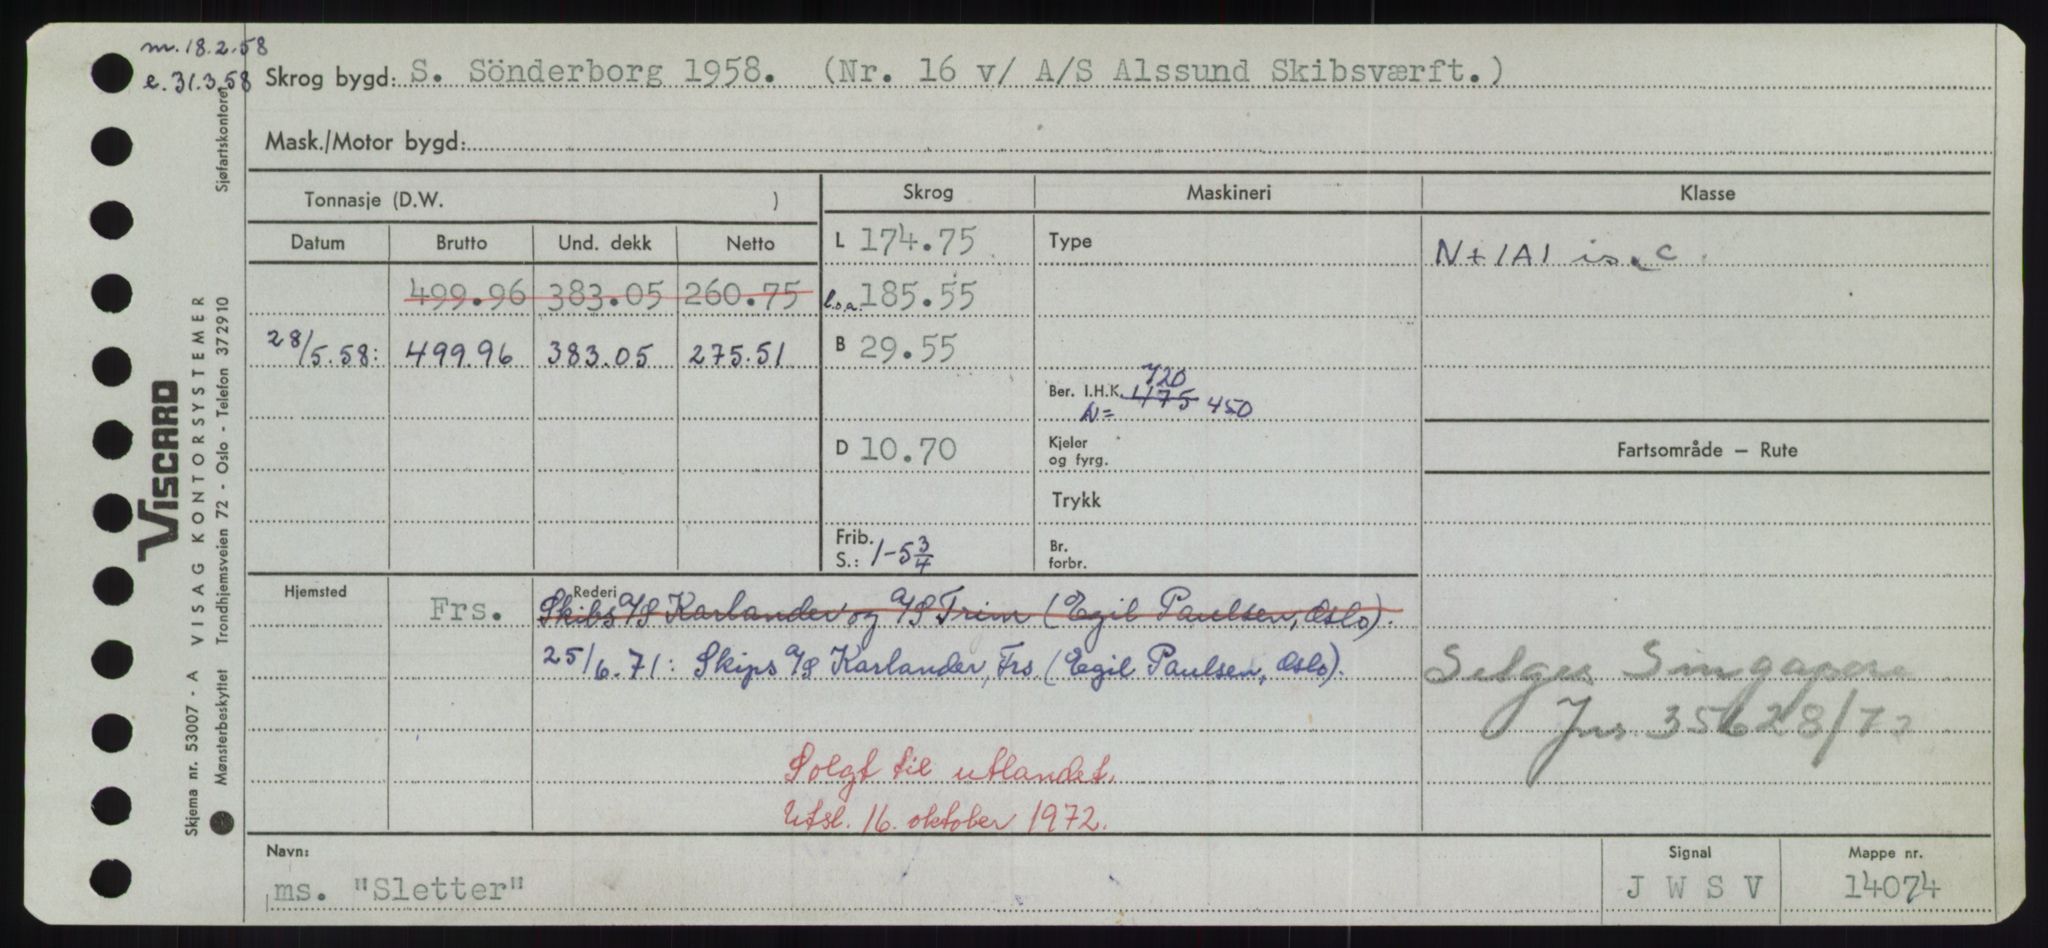 m. 18.2.58
e. 31.3.58
Skrog bygd: S. Sönderborg 1958. (Nr. 16 v/ A/S Alssund Skibsværft.)
Mask./Motor bygd:
Tonnasje (D.W. )
Skrog
Maskineri
Klasse
Datum Brutto Und. dekk Netto
L 174.75
Type
N+1A1 is C
499.96 383.05 260.75
l.o.a. 185.55
28/5.58: 499.96 383.05 275.51
B 29.55
720
Ber. I.H.K. 475 450
N=
D 10.70
Kjeler
og fyrg.
Fartsområde — Rute
Trykk
Frib.
S.: 1-5 3/4
Br.
forbr.
Hjemsted
Rederi
Frs. Skibs A/S Karlander og A/S Trim (Egil Paulsen, Oslo).
25/6.71: Skips A/S Karlander, Frs (Egil Paulsen, Oslo).
Selges Singapore
Jns 35628/72
Solgt til utlandet.
Utsl. 16. oktober 1972.
Navn:
ms. "Sletter"
Signal
J W S V
Mappe nr.
14074
VISCARD
Skjema nr. 53007 - A VISAG KONTORSYSTEMER
Mønsterbeskyttet Trondhjemsveien 72 - Oslo - Telefon 372910 Sjøfartskontoret